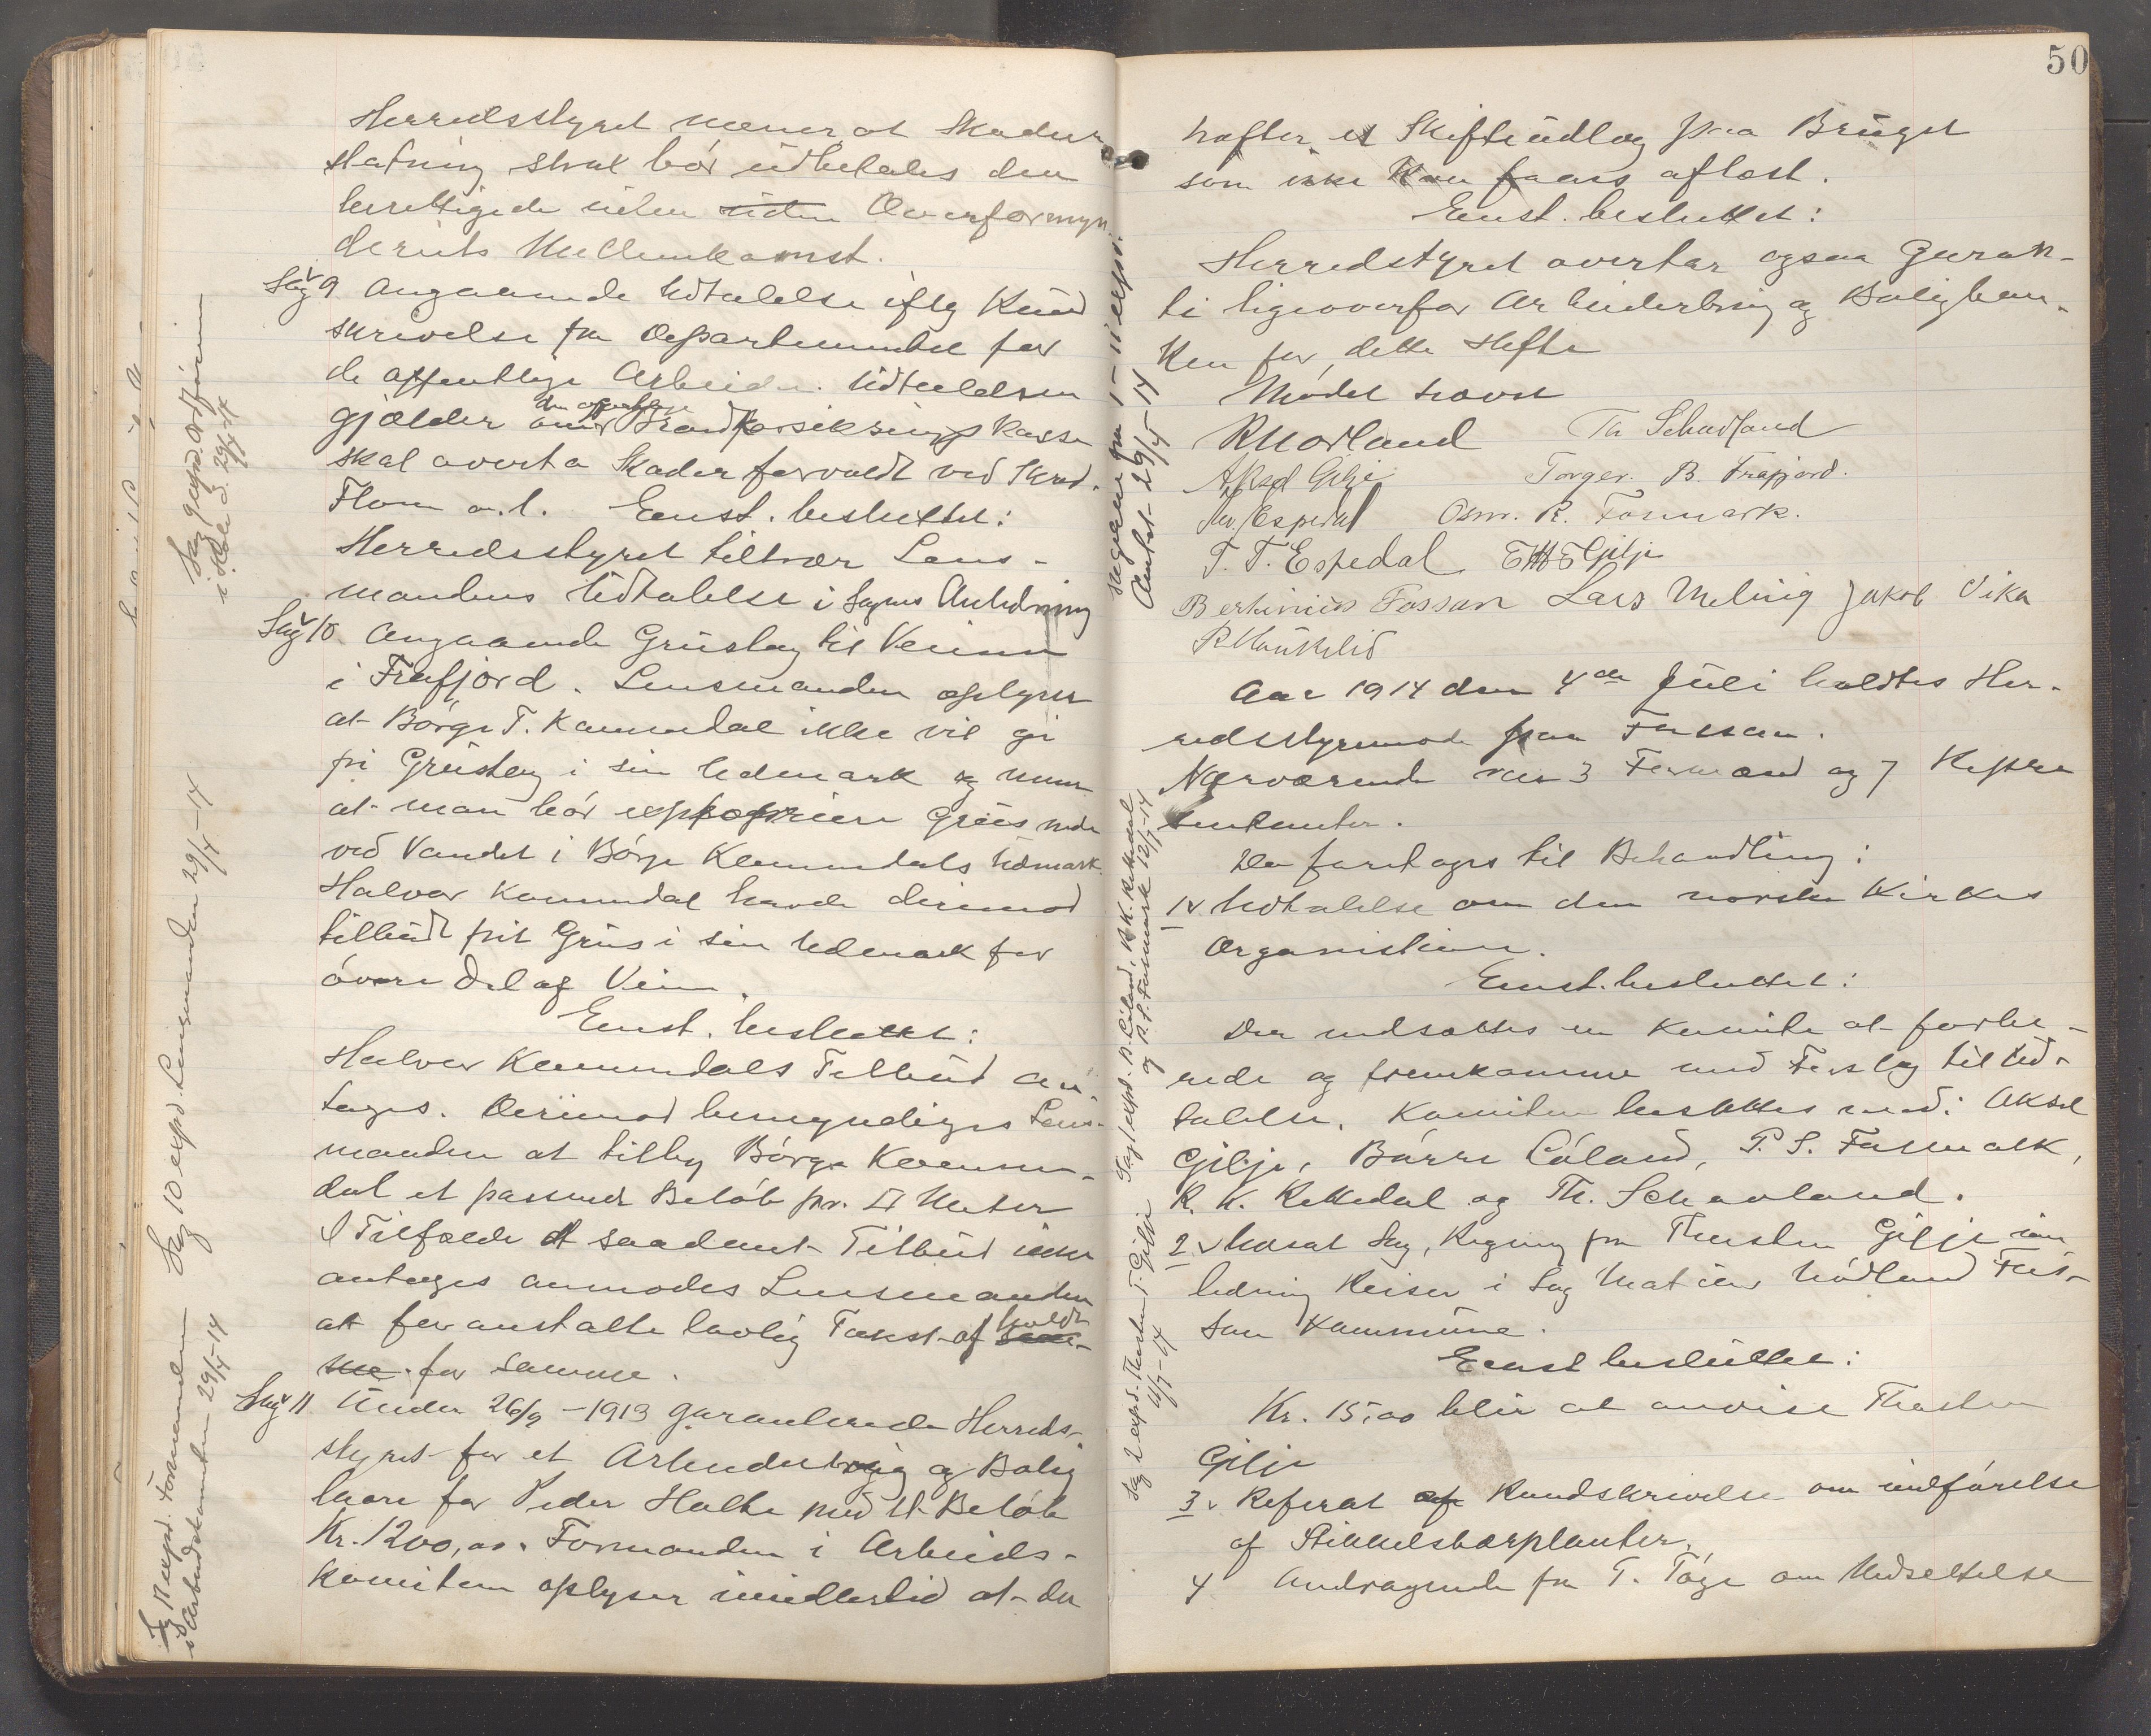 Herredsstyret mener at Skades
statning strax bør udbetales den
berettigede uten uden Overformyn
deriets Mellemkomst.
Sag 9 Angaaende Udtalelse iflg Rund
skrivelse fra Departementet for
de offentlige Arbeider. Udtalelsen
gjælder om den offentlige Brandforsikringskasse
skal overta Skader forvoldt ved Skred.
Flom o.l. Enst. besluttet:
Herredsstyret tiltrær Lens-
mandens Udtalelse i Sagens Anledning
Sag 10 Angaaende Grustag til Veien
i Frafjord. Lensmanden oplyser
at Børge T. Kommedal ikke vil gi
fri Grustag i sin Udmark og mener
at man bør expropriere Grus nede
ved Vandet i Børge Kommedals Udmark.
Halvor Kommedal havde derimod
tilbudt frit Grus i sin Udmark for
øvere Del af Veien.
Enst. besluttet:
Halvor Kommedals Tilbud an
tages. Derimod bemyndiges Lens-
manden at tilby Børge Komme-
dal et passende Beløb pr. □ Meter
I Tilfælde at saadant Tilbud ikke
antages anmodes Lensmanden
at foranstalte lovlig Takst afholdt
for samme.
Sag 11 Under 26/9 - 1913 garanterede Herreds-
styret for et Arbeiderbrug og Bolig
laan for Peder Halte med et Beløb
Kr. 1200,00. Formanden i Arbeids-
komiteen oplyser imidlertid at der
Sag 9 expd. Ordføreren
29/4-14
Sag 10 expd. Lensmanden 29/4-14
Sag 11 expd. Formanden
i Arbeidskomiteen 29/4-14
50
hefter et Skifteudlæg paa Bruget
som ikke kan faaes afløst.
Enst. besluttet:
Herredstyret overtar ogsaa Garan-
ti ligeoverfor Arbeiderbrug og Boligban-
ken for dette Hefte
Mødet hævet
R Morland Th Schavland
Aksel Gilje Torger B. Frafjord.
Espedal Osm. R. Fosmark.
T. T. Espedal Gilje
Bertinius Fossan Lars Meling Jakob Vika
R Haukelid
Sagerne fra 1 - 11 expd.
Amtet 29/4-14
Aar 1914 den 4de Juli holdtes Her-
redsstyremøde paa Fossan.
Nærværende var 3 Formænd og 7 Repræ
sentanter.
Der foretages til Behandling:
1 Udtalelse om den norske Kirkes
Organisation.
Enst. besluttet:
Der nedsættes en Komite at forbe-
rede og fremkomme med Forslag til Ud-
talelse. Komiteen besættes med: Aksel
Gilje, Børre Løland, P. S. Fosmark,
R. K. Rettedal og Th. Schavland.
2 Udsat Sag, Regning fra Thorsten Gilje i an
ledning Reiser i Sag Mathias Mødland Fos-
san Kommune.
Enst besluttet:
Kr. 15,00 blir at anvise Thorsten
Gilje
3 Referat af Rundskrivelse om indførelse
af Stikkelsbærplanter.
4 Andragende fra T. Tøge om Nedsettelse
Sag 1 expd. B. Løland, R. K. Rettedal
og P. S. Fosmark 12/7-14
Sag 2 expd. Thorsten T. Gilje
11/7-14